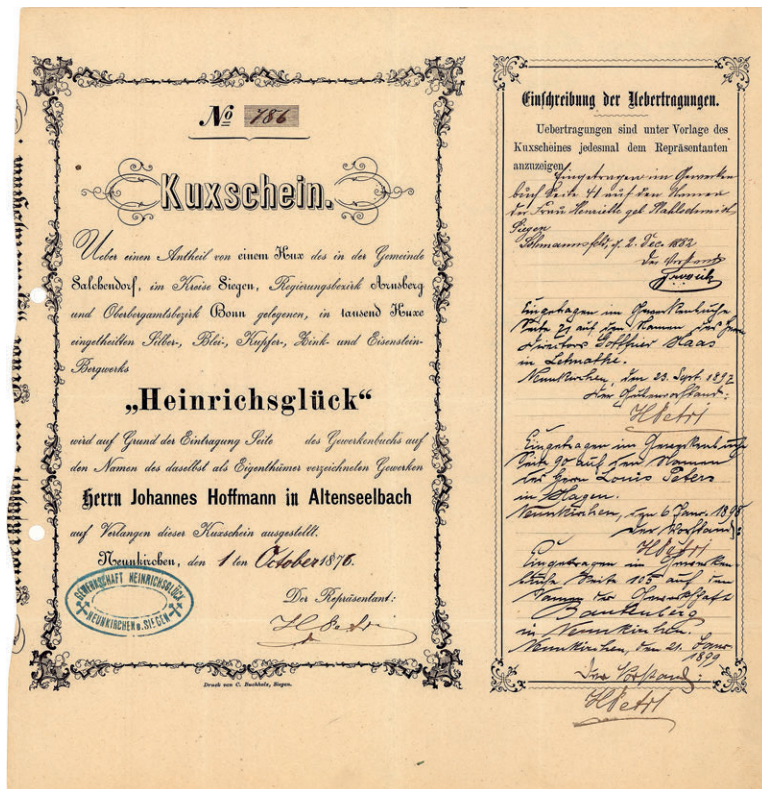 No 786
Kuxschein.
Ueber einen Antheil von einem Kux des in der Gemeinde
Salchendorf, im Kreise Siegen, Regierungsbezirk Arnsberg
und Oberbergamtsbezirk Bonn gelegenen, in tausend Kuxe
eingetheilten Silber-, Blei-, Kupfer-, Zink- und Eisenstein-
Bergwerks
„Heinrichsglück“
wird auf Grund der Eintragung Seite des Gewerkenbuchs auf
den Namen des daselbst als Eigenthümer verzeichneten Gewerken
Herrn Johannes Hoffmann in Altenseelbach
auf Verlangen dieser Kuxschein ausgestellt.
Neunkirchen, den 1 ten October 1876.
GEWERKSCHAFT HEINRICHSGLÜCK
NEUNKIRCHEN B. SIEGEN
Der Repräsentant:
H Petri
Druck von C. Buchholz, Siegen.
Einschreibung der Uebertragungen.
Uebertragungen sind unter Vorlage des
Kuxscheines jedesmal dem Repräsentanten
anzuzeigen.
Eingetragen im Gewerken
buch Seite 41 auf den Namen
der Frau Henriette geb
Siegen
2. Dec. 1882
Der Vorstand
Eingetragen im Gewerkenbuche
Seite 71 auf den Namen des Herrn
Directors Haas
in Letmathe.
Neunkirchen, den 23. Sept. 1897
Der Grubenvorstand:
H Petri
Eingetragen im Gewerkenbuche
Seite 90 auf den Namen
des Herrn Louis Peters
in Hagen.
Neunkirchen, den 6 Janr. 1898
Der Vorstand:
H Petri
Eingetragen im Gewerken
buche Seite 105 auf den
Namen der Gewerkschaft
in Neunkirchen.
Neunkirchen, den 21. Janr
1899
Der Vorstand:
H Petri